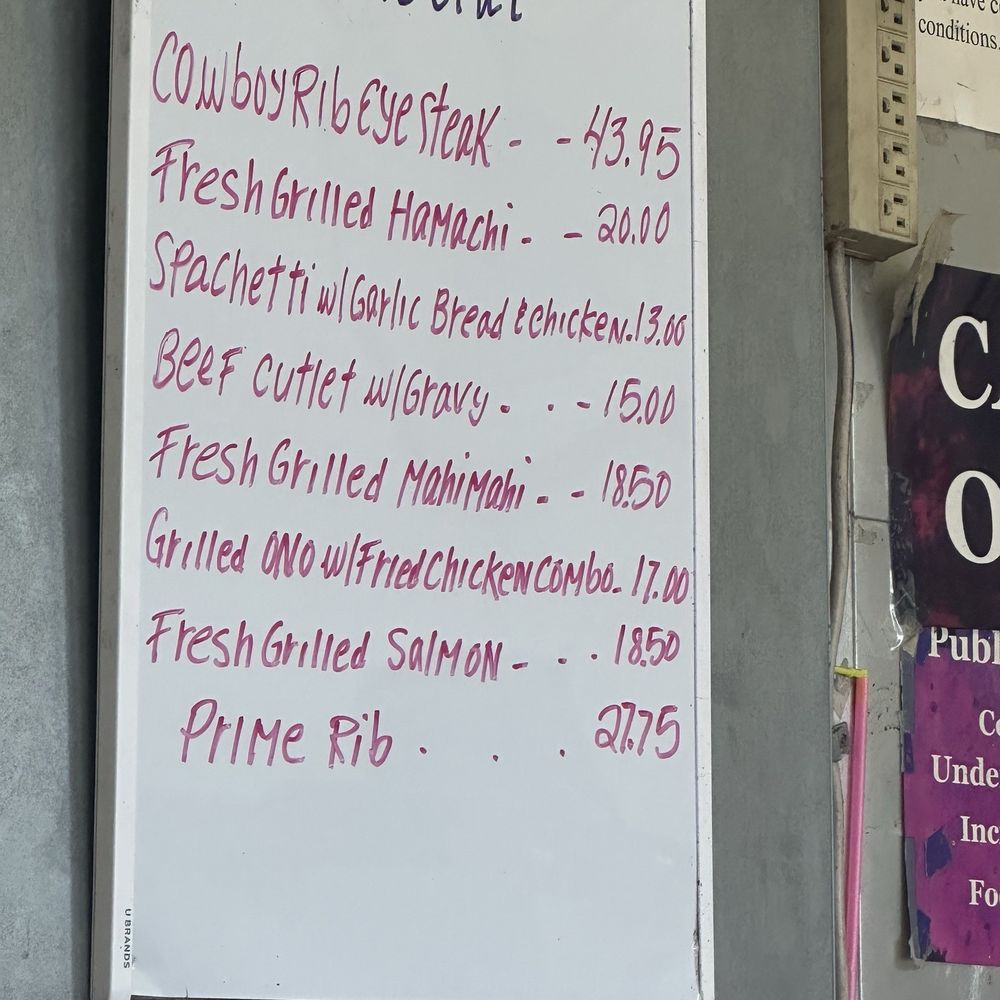 Cowboy Rib Eye Steak - - 43.95
Fresh Grilled Hamachi - - 20.00
Spachetti w/Garlic Bread & Chicken. 13.00
Beef Cutlet w/Gravy - . - 15.00
Fresh Grilled MahiMahi - - 18.50
Grilled ONO w/Fried Chicken Combo - 17.00
Fresh Grilled Salmon - . . 18.50
Prime Rib . . . 27.75
U BRANDS
conditions.